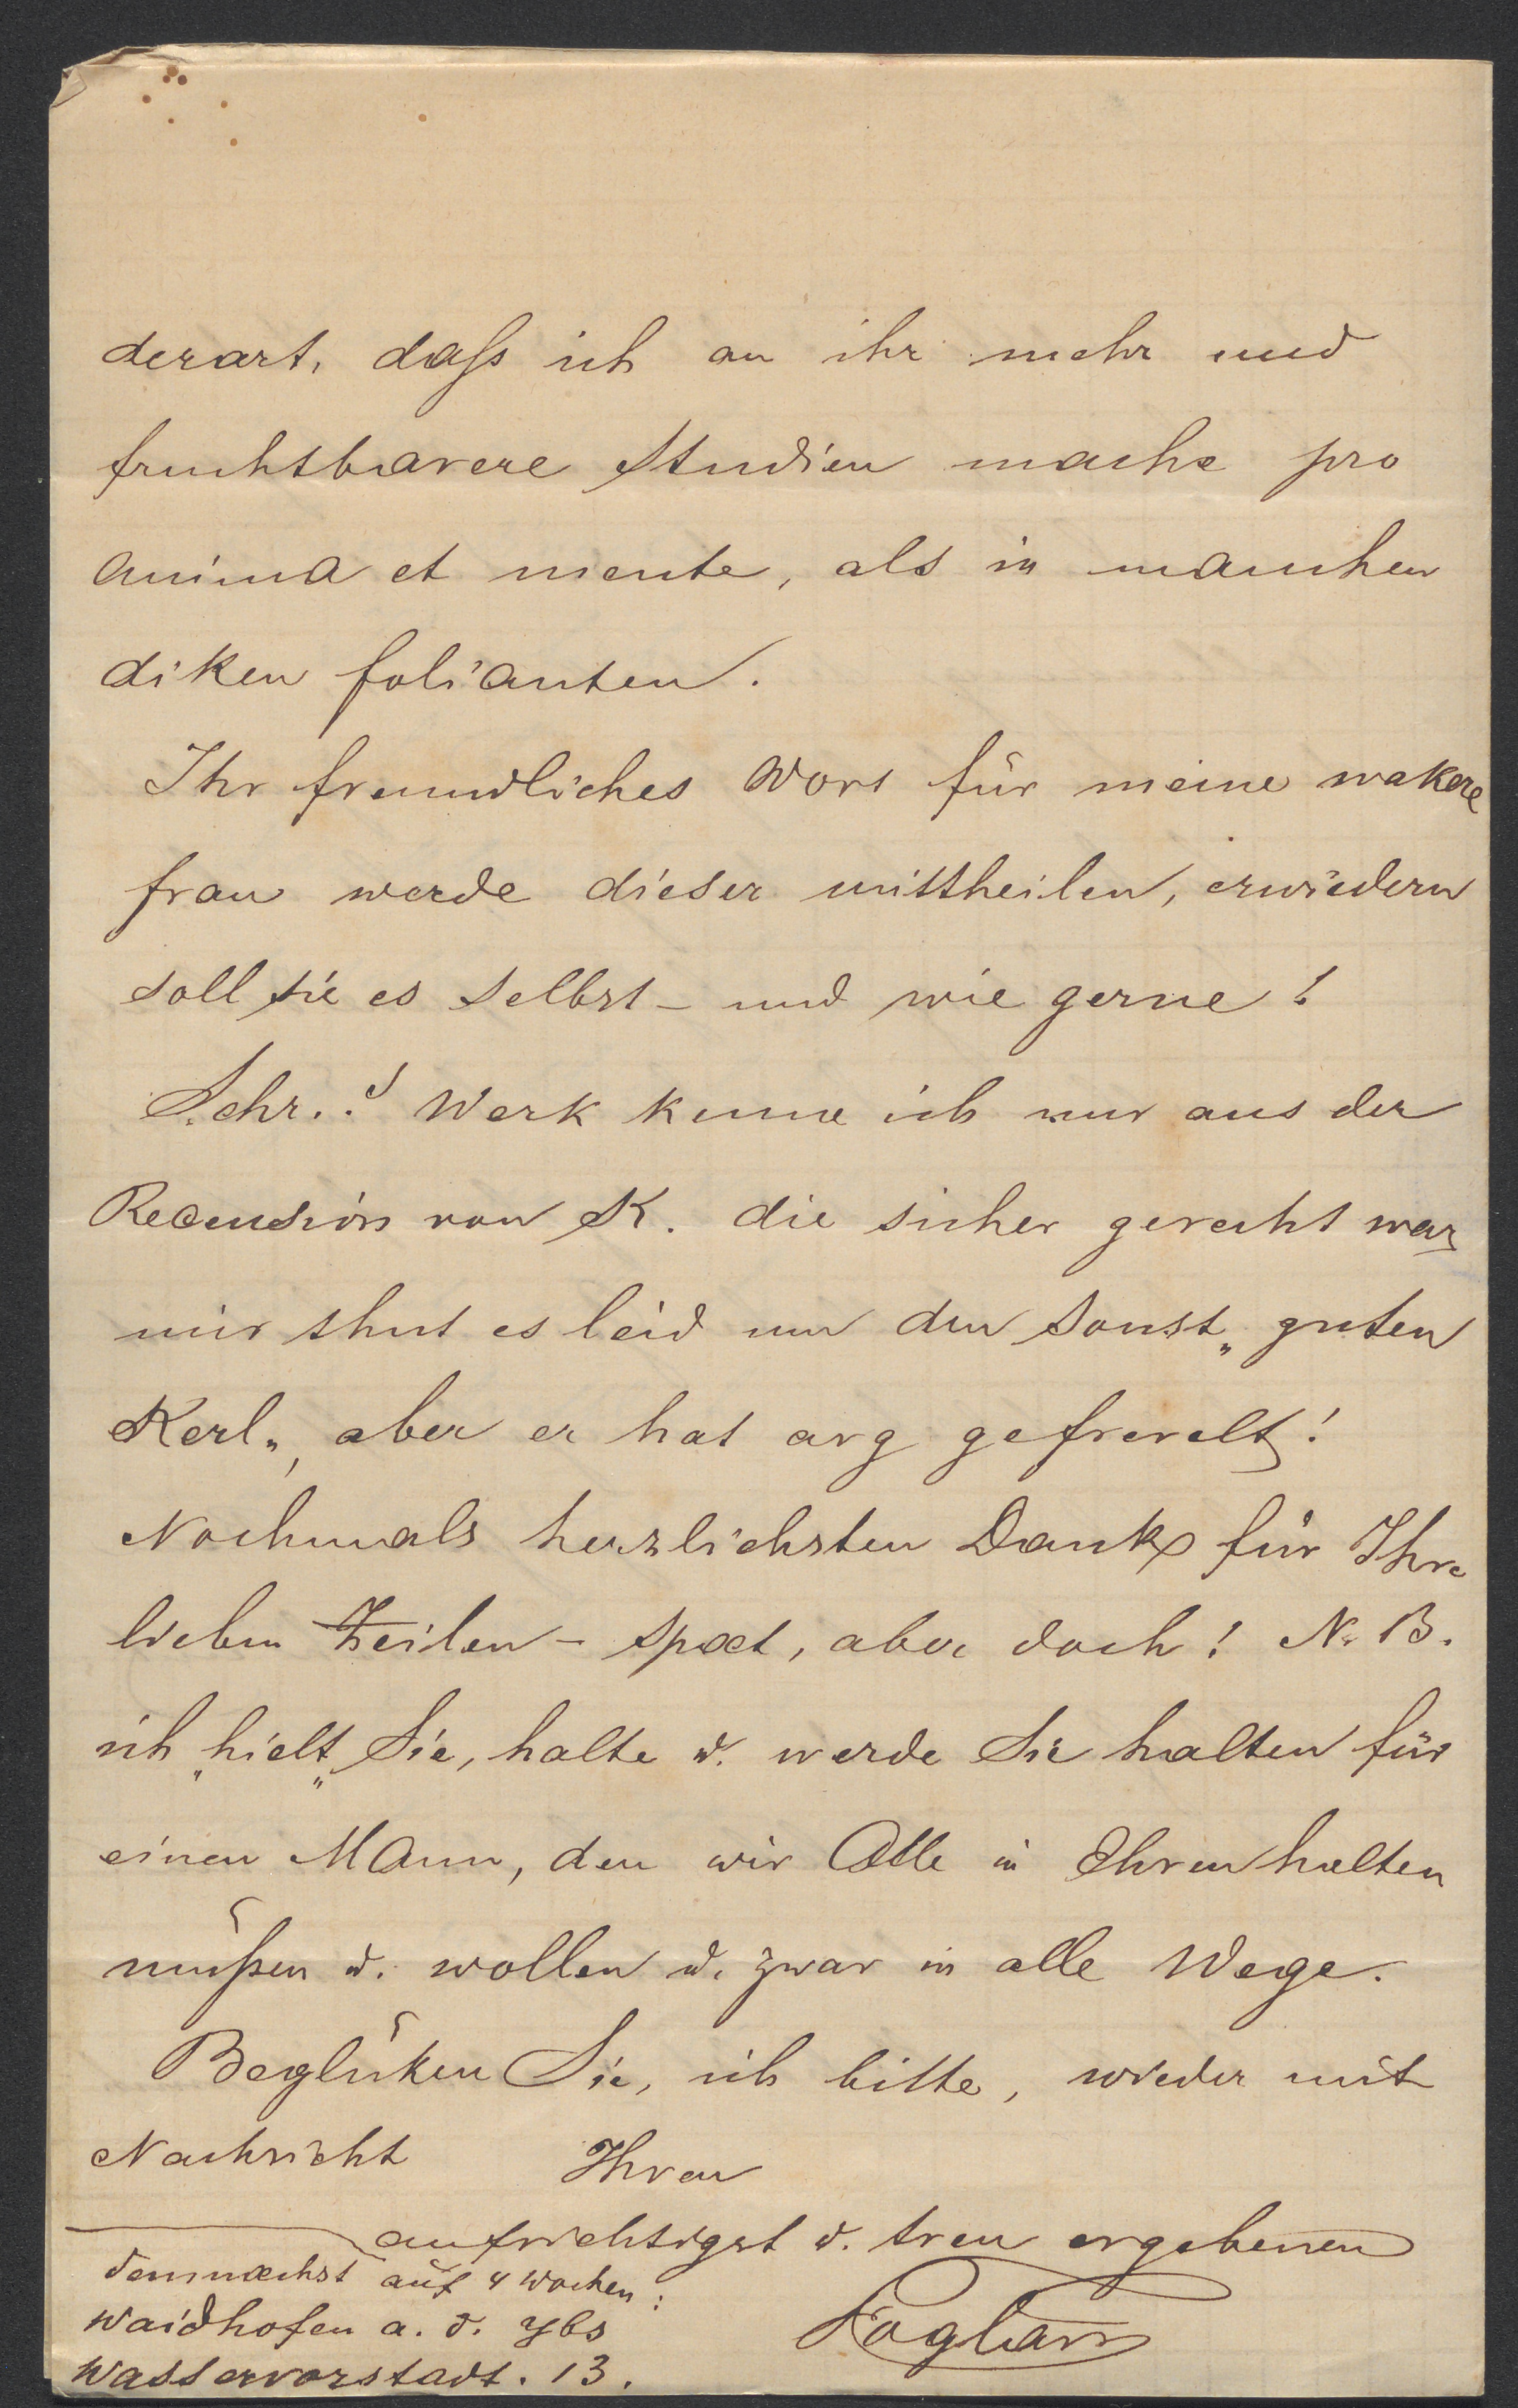 derart, daß ich an ihr mehr und
fruchtbarere Studien mache pro
anima et mente, als in manchen
diken folianten.
Ihr freundliches Wort für meine wakere
frau werde dieser mittheilen, erwiedern
soll sie es selbst – und wie gerne!
Schr.s Werk kenne ich nur aus der
Recension von K. die sicher gerecht war
mir thut es leid um den sonst „guten
Kerl", aber er hat arg gefrevelt!
Nochmals herzlichsten Dank für Ihre
lieben Zeilen – spaet, aber doch! N. B.
ich „hielt" Sie, halte u. werde Sie halten für
einen Mann, den wir Alle in Ehren halten
müßen u. wollen u. zwar in alle Wege.
Beglüken Sie, ich bitte, wieder mit
Nachricht Ihren
aufrichtigst u. treu ergebenen
demnaechst auf 4 Wochen:
Waidhofen a. d. Ybs
Wasservorstadt. 13.
Foglar